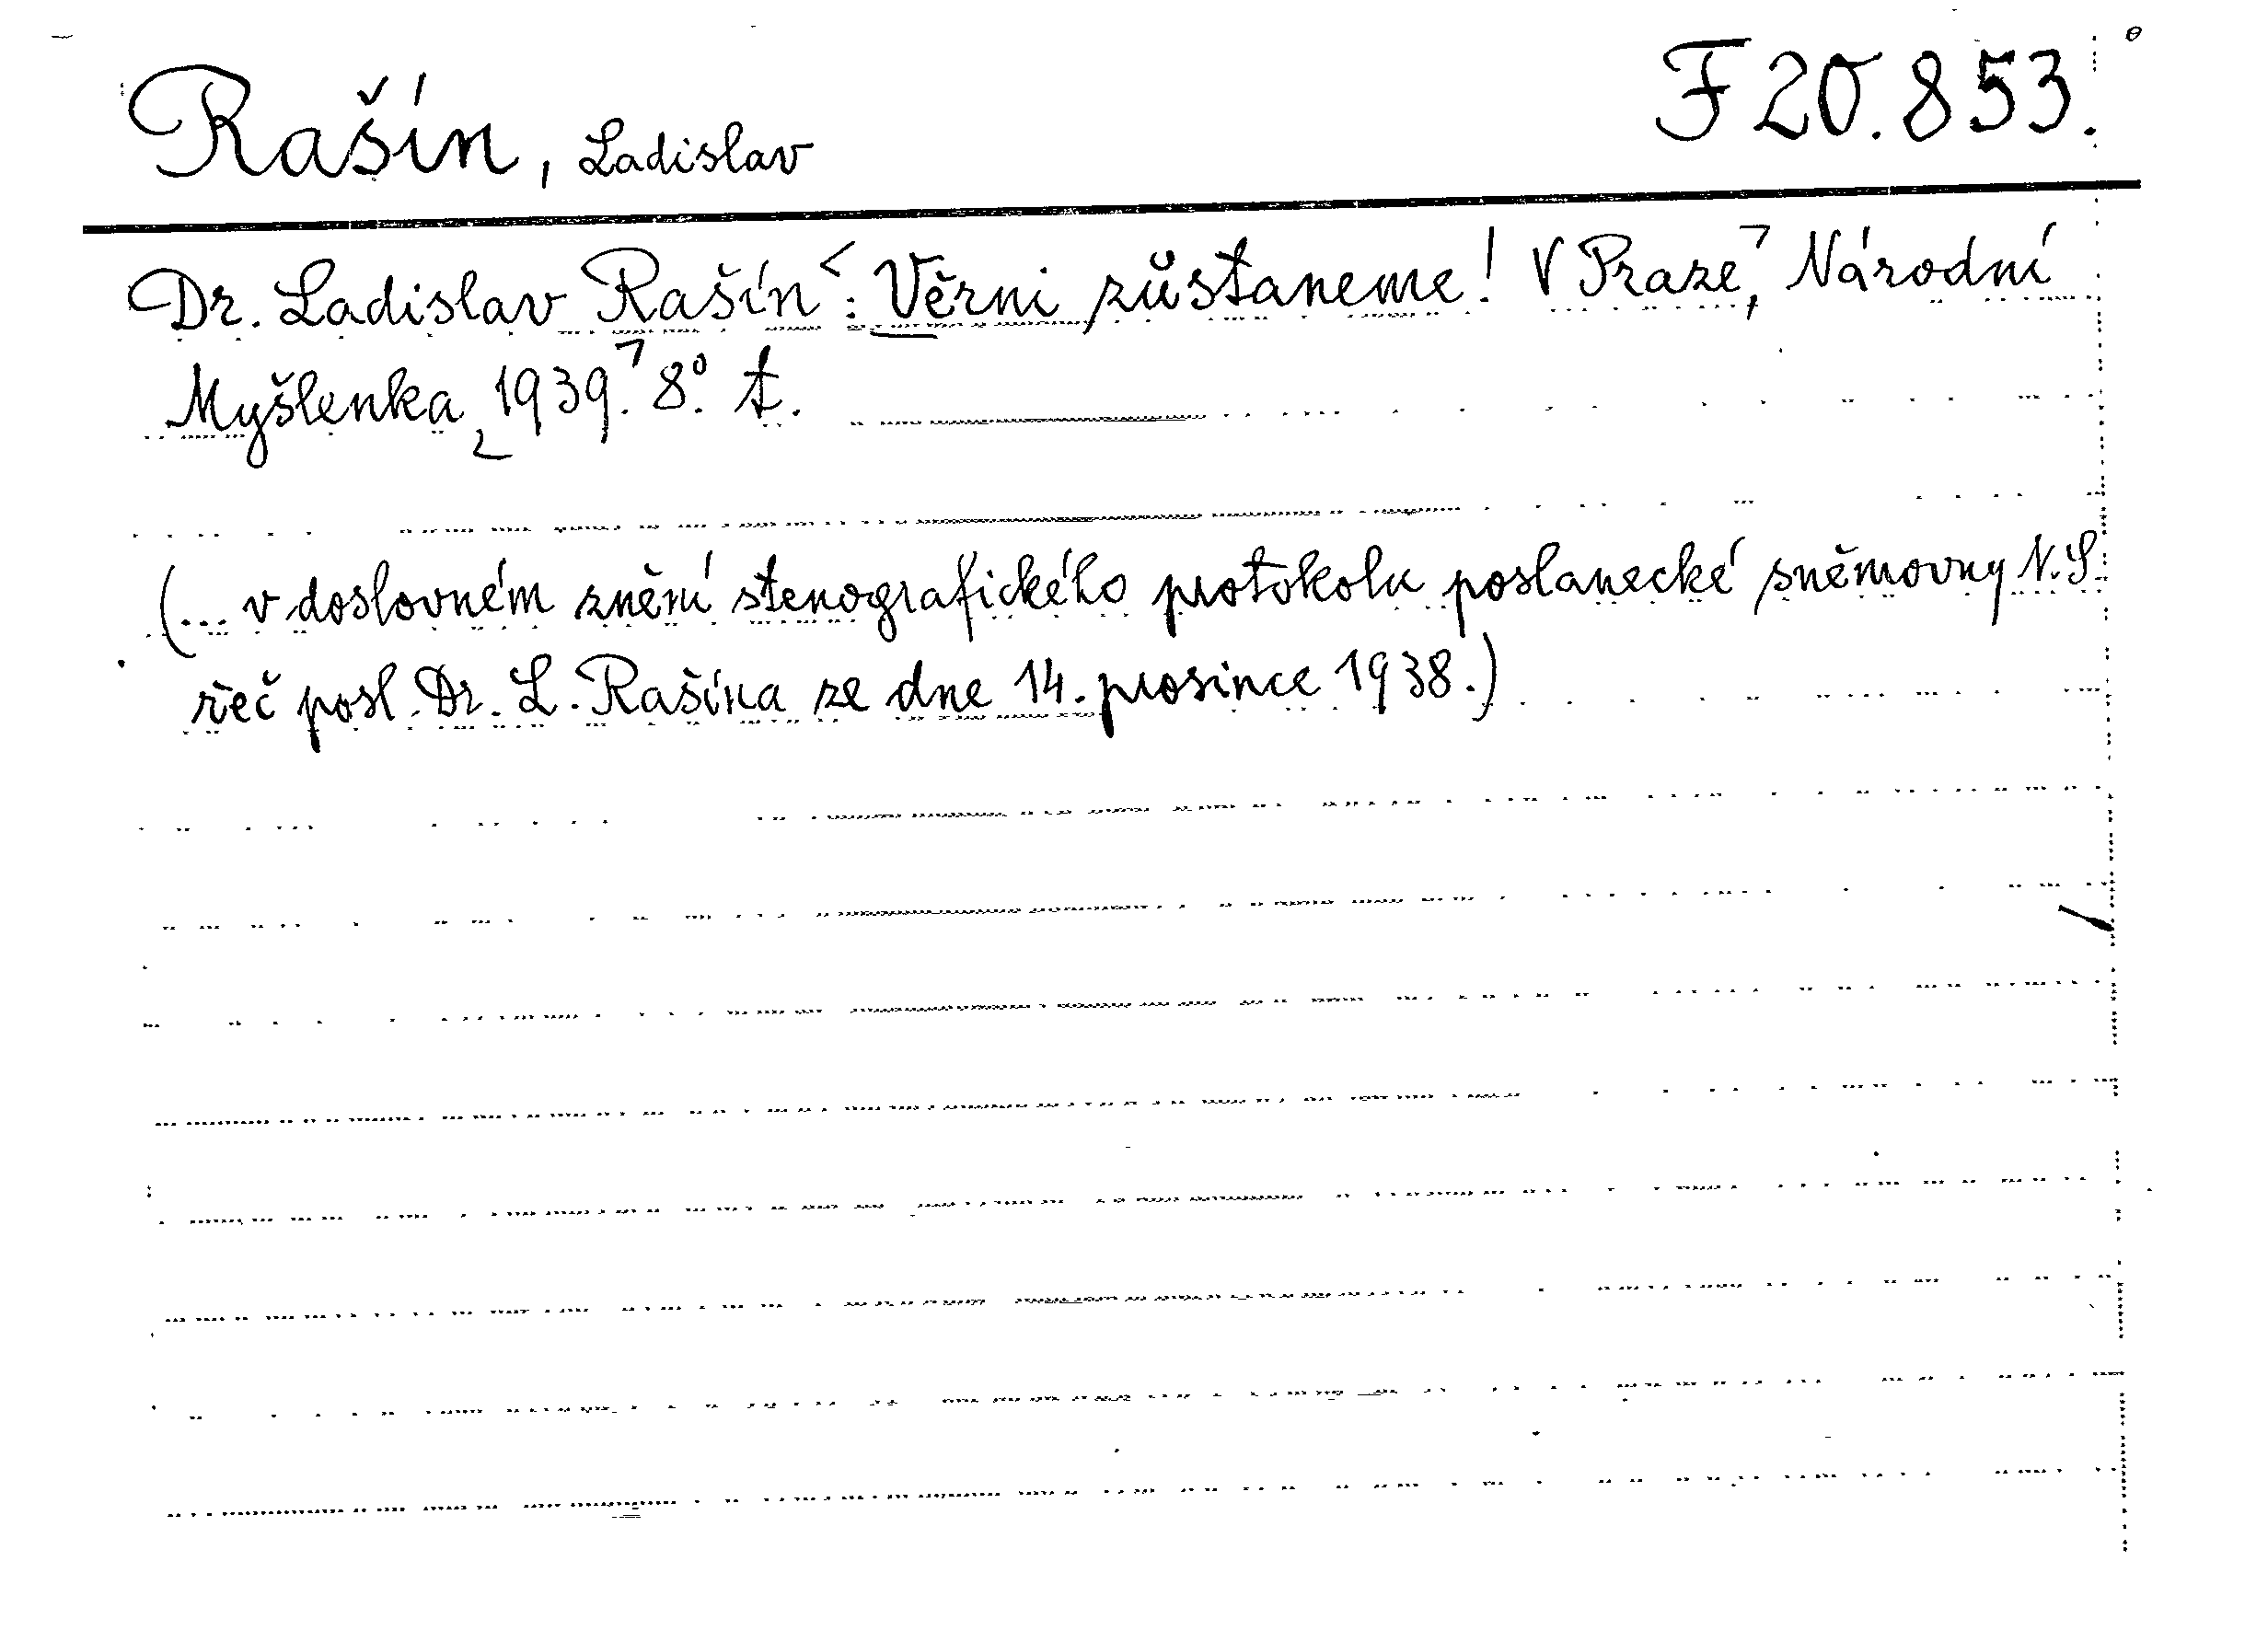 Rašín, Ladislav
F 20.853.
Dr. Ladislav Rašín: Věrni zůstaneme! V Praze, Národní
Myšlenka 1939. 8º. t.
(... v doslovném znění stenografického protokolu poslanecké sněmovny N.S.
řeč posl. Dr. L. Rašína ze dne 14. prosince 1938.)